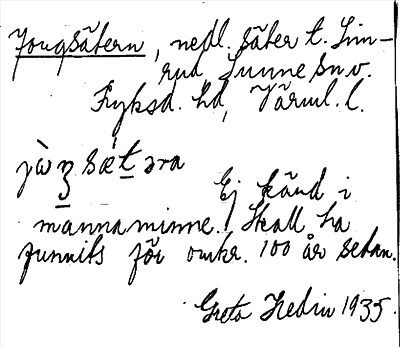 Jongsätern, nedl. säter t. Lim-
rud, Sunne sn v.
Fryksd. hd, Värml. l.
sæ̀təra
Ej känd i
mannaminne. Skall ha
funnits för omkr. 100 år sedan.
Greta Hedin 1935.